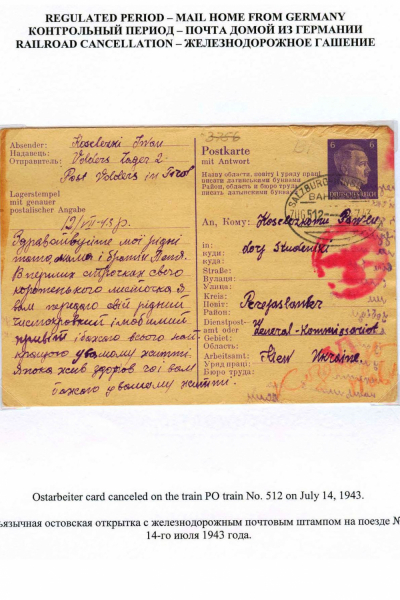 REGULATED PERIOD – MAIL HOME FROM GERMANY
КОНТРОЛЬНЫЙ ПЕРИОД – ПОЧТА ДОМОЙ ИЗ ГЕРМАНИИ
RAILROAD CANCELLATION – ЖЕЛЕЗНОДОРОЖНОЕ ГАШЕНИЕ
Absender:
Надавець:
Отправитель:
Volders Lager 2
Post Volders in Tirol
Lagerstempel
mit genauer
postalischer Angabe
Здравствуйте мої рідні
тато мама і братік Петя.
В перших строчках свого
коротенького листочка я
вам передаю свій рідний
привіт і бажаю всього най-
кращого у вашому житті.
Я пока жив здоров чого і вам
бажаю у вашому житті.
3756
Postkarte
mit Antwort
Назву области, повіту і уряду праці
писати латинськими буквами
Район, область и бюро труда
писать латинскими буквами
6 6
DEUTSCHES REICH
SALZBURG
BAHNPOST
ZUG 512
An, Кому:
in:
куди:
куда:
Straße:
Вулиця:
Улица:
Kreis:
Повіт:
Район:
Perejaslawker
Dienstpost-
amt oder
Gebiet:
Область:
General-Kommissariat
Arbeitsamt:
Уряд праці:
Бюро труда:
Kiew Ukraine.
Ostarbeiter card canceled on the train PO train No. 512 on July 14, 1943.
ьязычная остовская открытка с железнодорожным почтовым штампом на поезде №
14-го июля 1943 года.